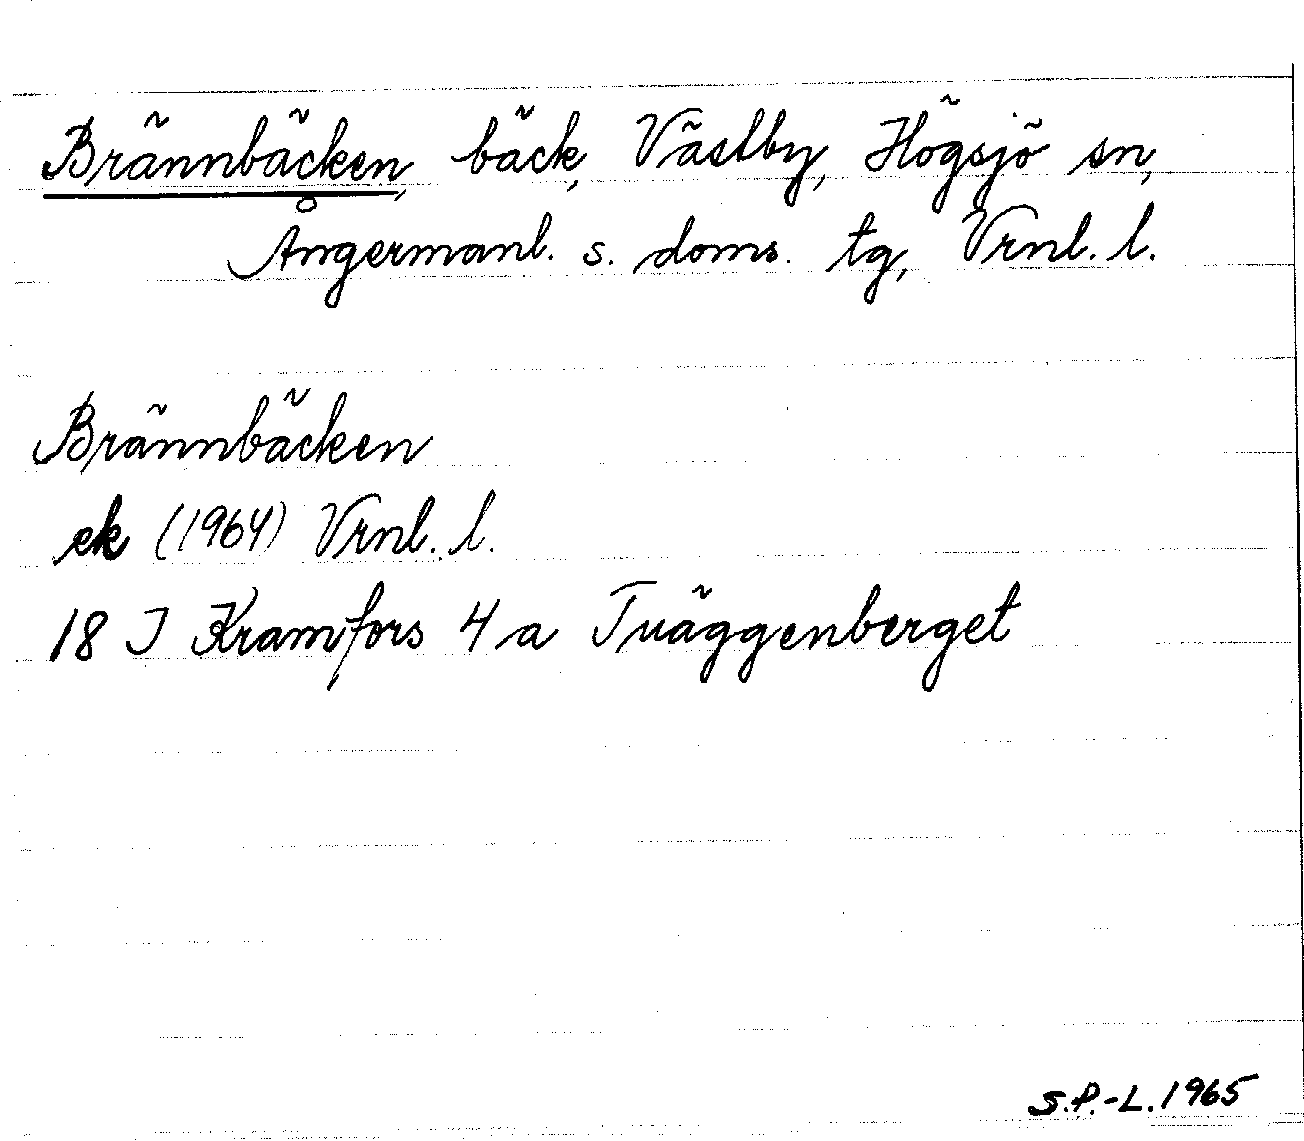 Brännbäcken, bäck, Västby, Högsjö sn,
Ångermanl. s. doms. tg, Vrnl. l.
Brännbäcken
ek (1964) Vrnl. l.
18 I Kramfors 4 a Tväggenberget
S.P.-L. 1965